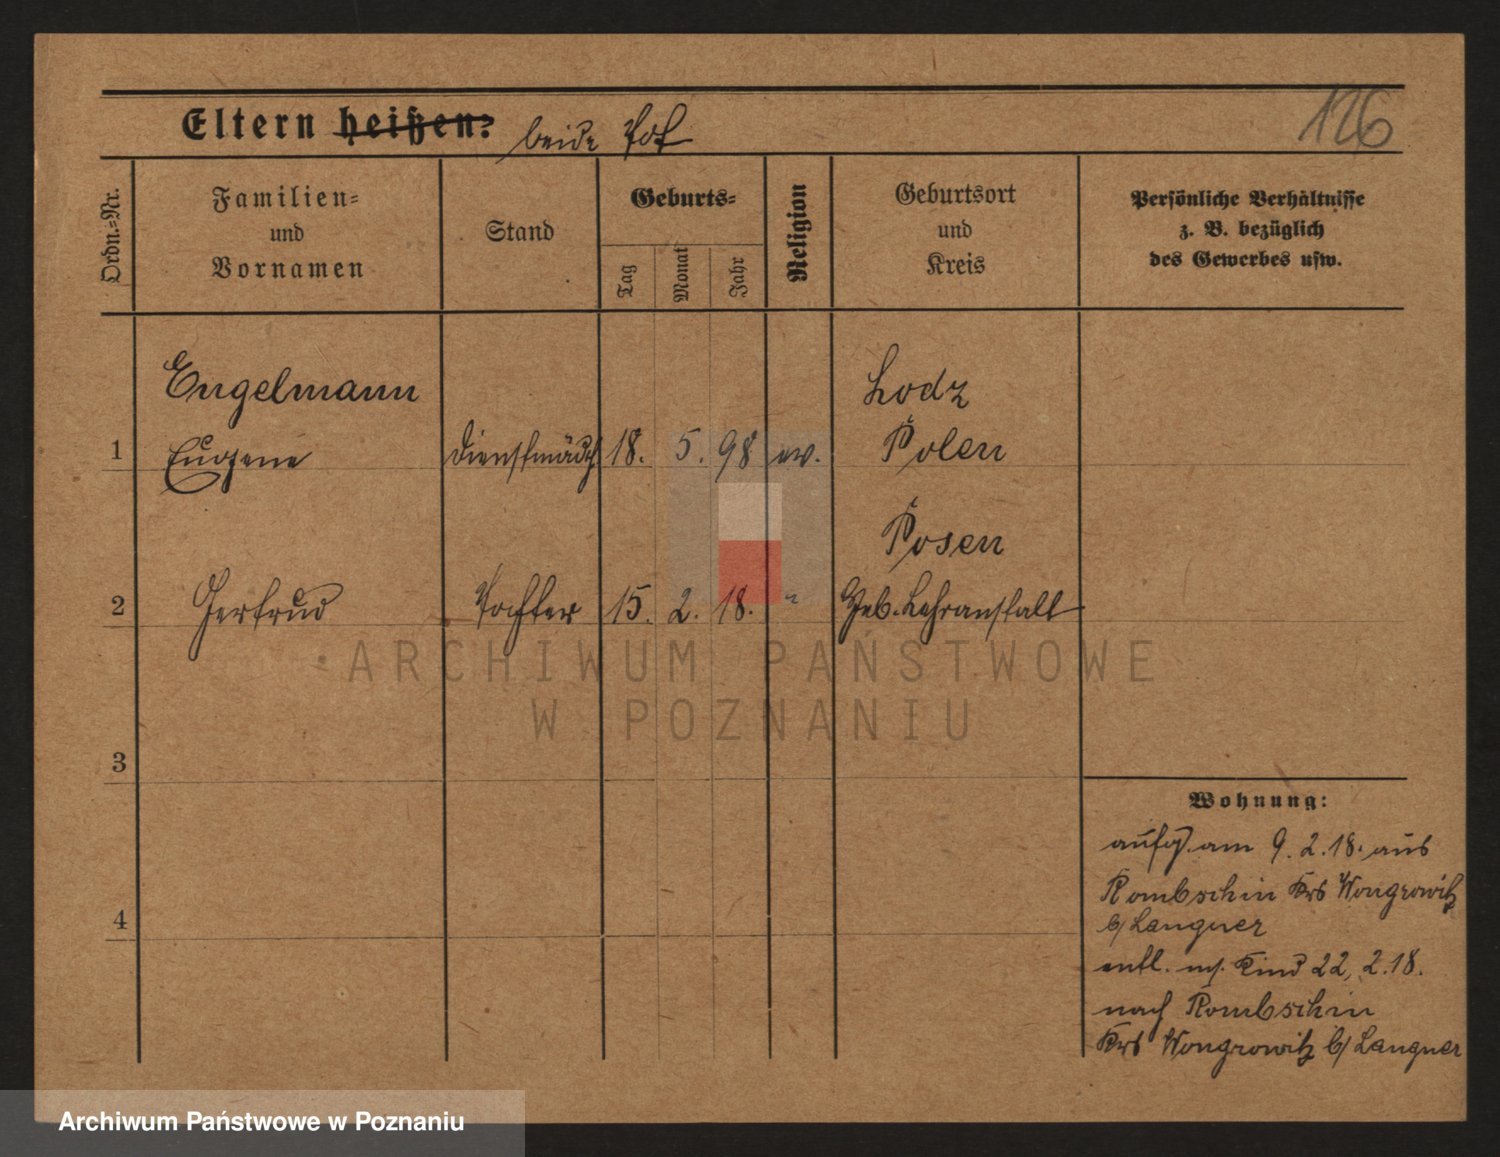 Eltern heißen: beide tot
126
Ordn.=Nr.
Familien=
und
Vornamen
Stand
Geburts=
Tag
Monat
Jahr
Religion
Geburtsort
und
Kreis
Persönliche Verhältnisse
z. B. bezüglich
des Gewerbes usw.
Engelmann
Lodz
1 Eugene Dienstmädch 18. 5. 98 ev. Polen
Posen
2 Gertrud Tochter 15. 2. 18. " Geb. Lehranstalt
ARCHIWUM PAŃSTWOWE
W POZNANIU
3
4
Wohnung:
aufg. am 9. 2. 18. aus
Rombschin Krs Wongrowitz
b/ Langner
entl. m/. Kind 22, 2. 18.
nach Rombschin
Krs Wongrowitz b/ Langner
Archiwum Państwowe w Poznaniu